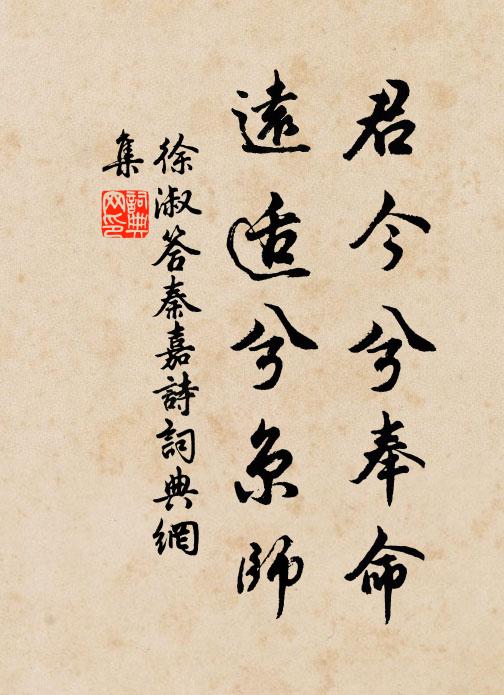 君今兮奉命
遠适兮京師
徐淑答秦嘉詩詞典網
集
詞典
网印